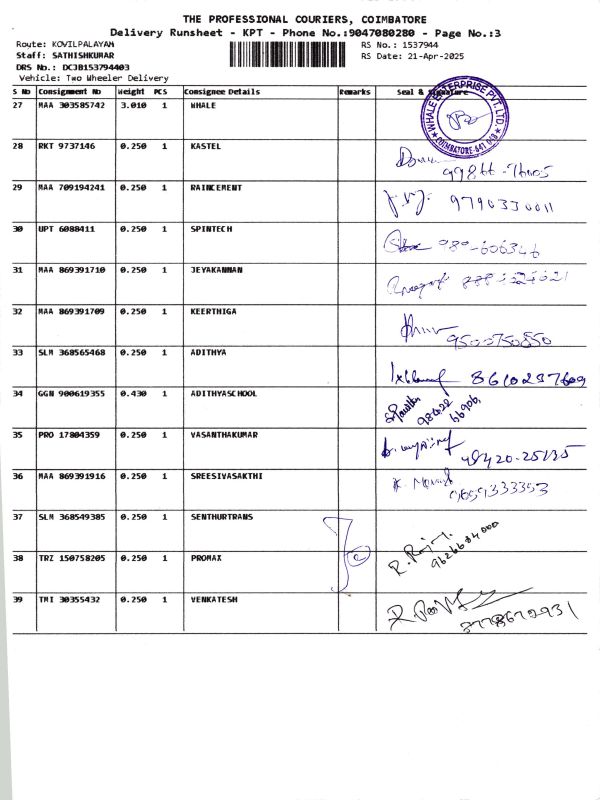 THE PROFESSIONAL COURIERS, COIMBATORE
Delivery Runsheet - KPT - Phone No.:9047080280 - Page No.:3
Route: KOVILPALAYAM
RS No.: 1537944
Staff: SATHISHKUMAR
RS Date: 21-Apr-2025
DRS No.: DCJB153794403
Vehicle: Two Wheeler Delivery
S No Consignment No Weight PCS Consignee Details Remarks Seal & Signature
27 MAA 303585742 3.010 1 WHALE
WHALE ENTERPRISE PVT.LTD. COIMBATORE-641
28 RKT 9737146 0.250 1 KASTEL
29 MAA 709194241 0.250 1 RAINCEMENT
9790330011
30 UPT 6088411 0.250 1 SPINTECH
31 MAA 869391710 0.250 1 JEYAKANNAN
32 MAA 869391709 0.250 1 KEERTHIGA
9500750850
33 SLM 368565468 0.250 1 ADITHYA
8610237609
34 GGN 900619355 0.430 1 ADITHYASCHOOL
98422
66906
35 PRO 17804359 0.250 1 VASANTHAKUMAR
36 MAA 869391916 0.250 1 SREESIVASAKTHI
9659333353
37 SLM 368549385 0.250 1 SENTHURTRANS
38 TRZ 150758205 0.250 1 PROMAX
9626684000
39 TMI 30355432 0.250 1 VENKATESH